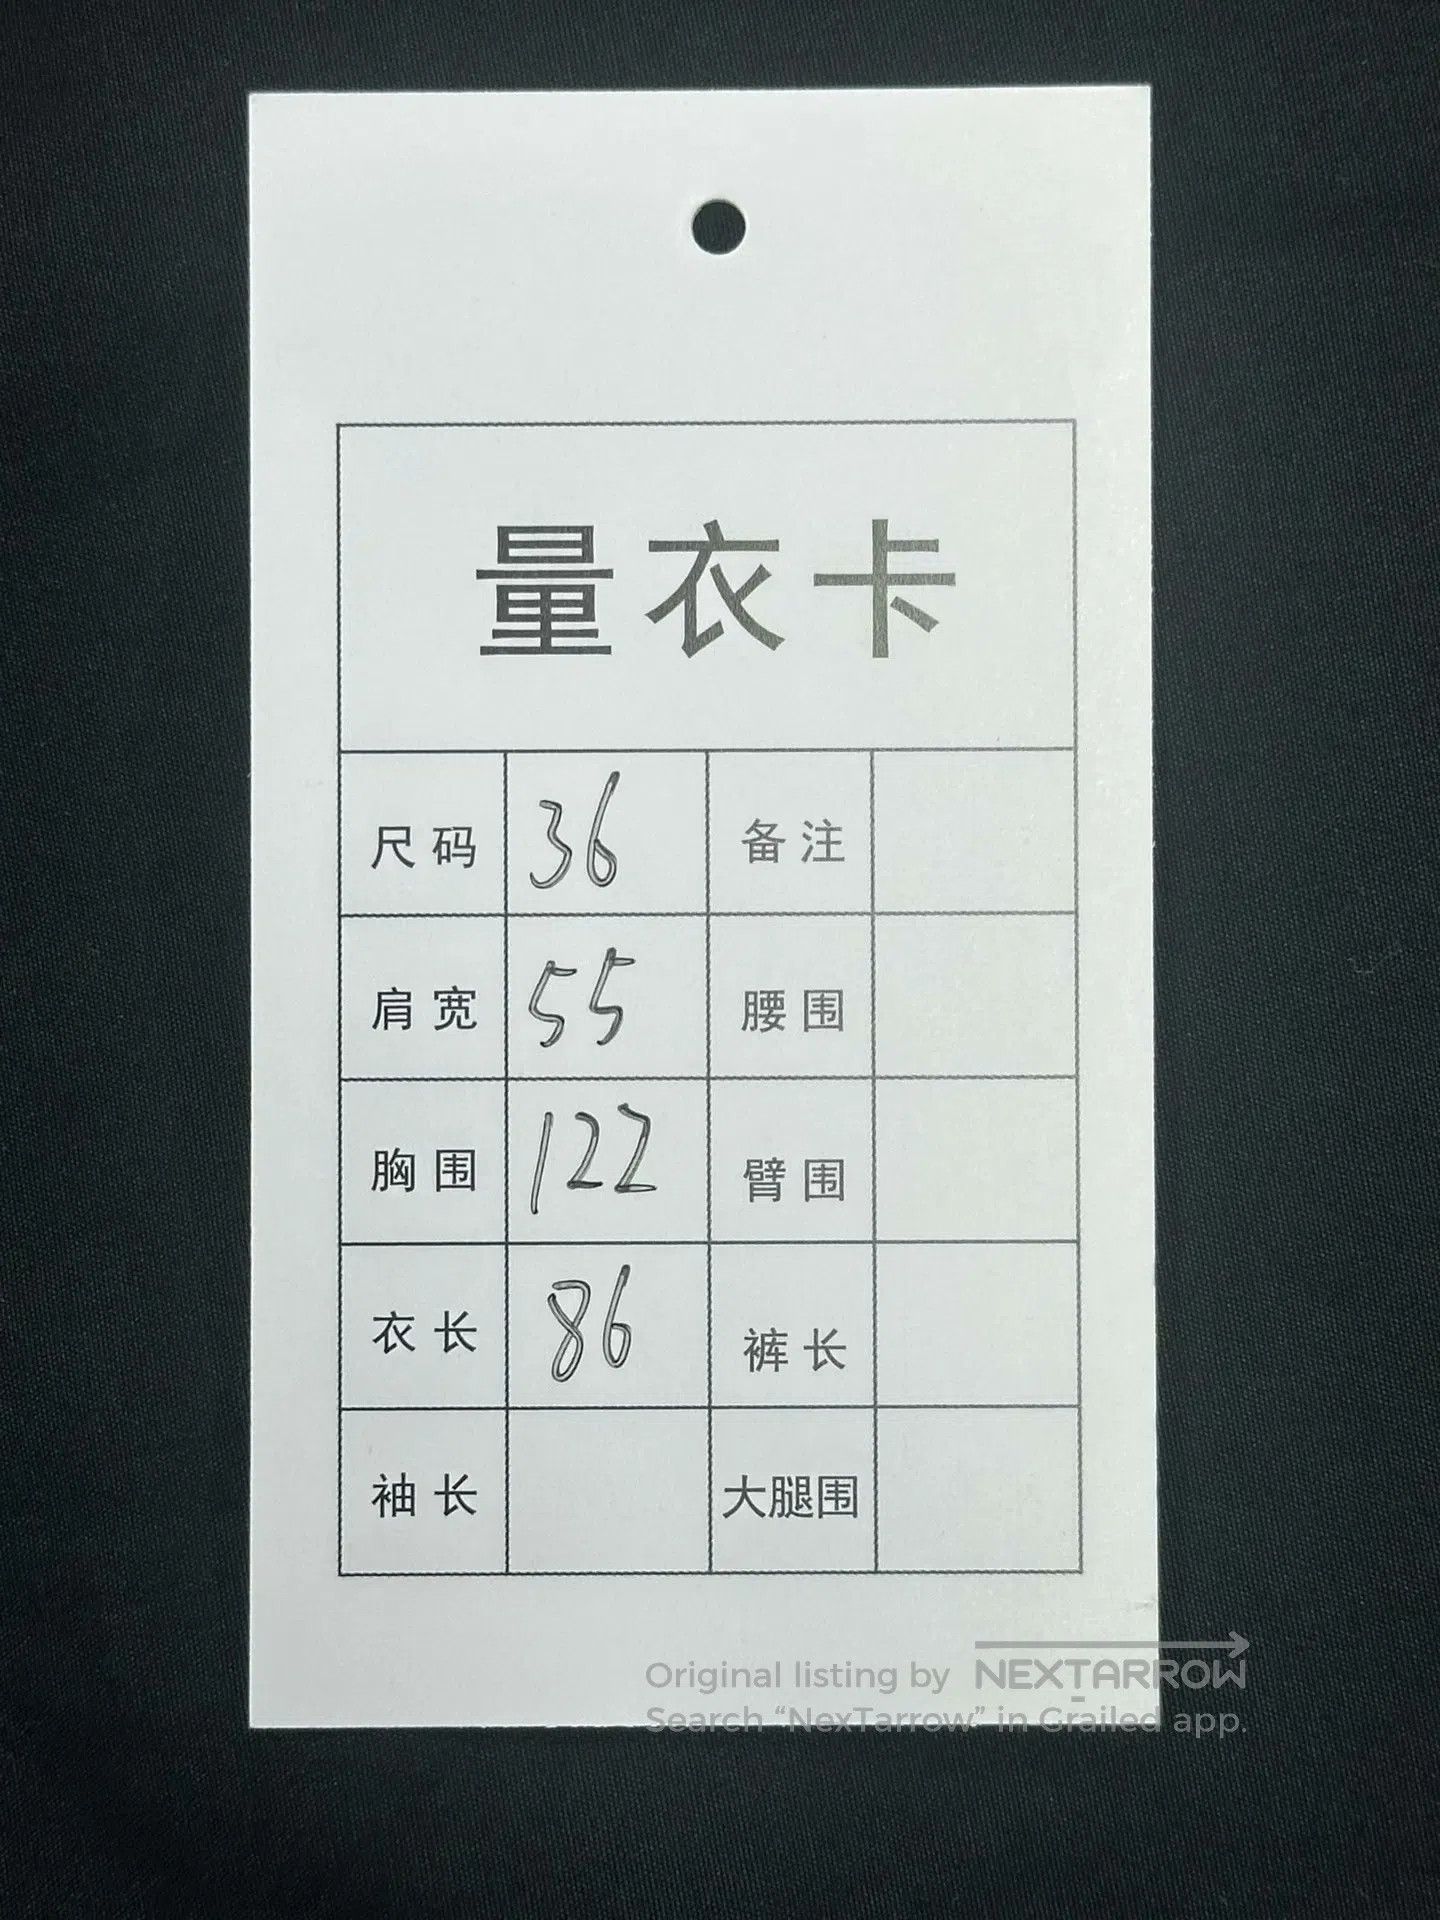 量衣卡
尺码 36 备注
肩宽 55 腰围
胸围 122 臂围
衣长 86 裤长
袖长 大腿围
Original listing by NEXTARROW
Search “NexTarrow” in Grailed app.